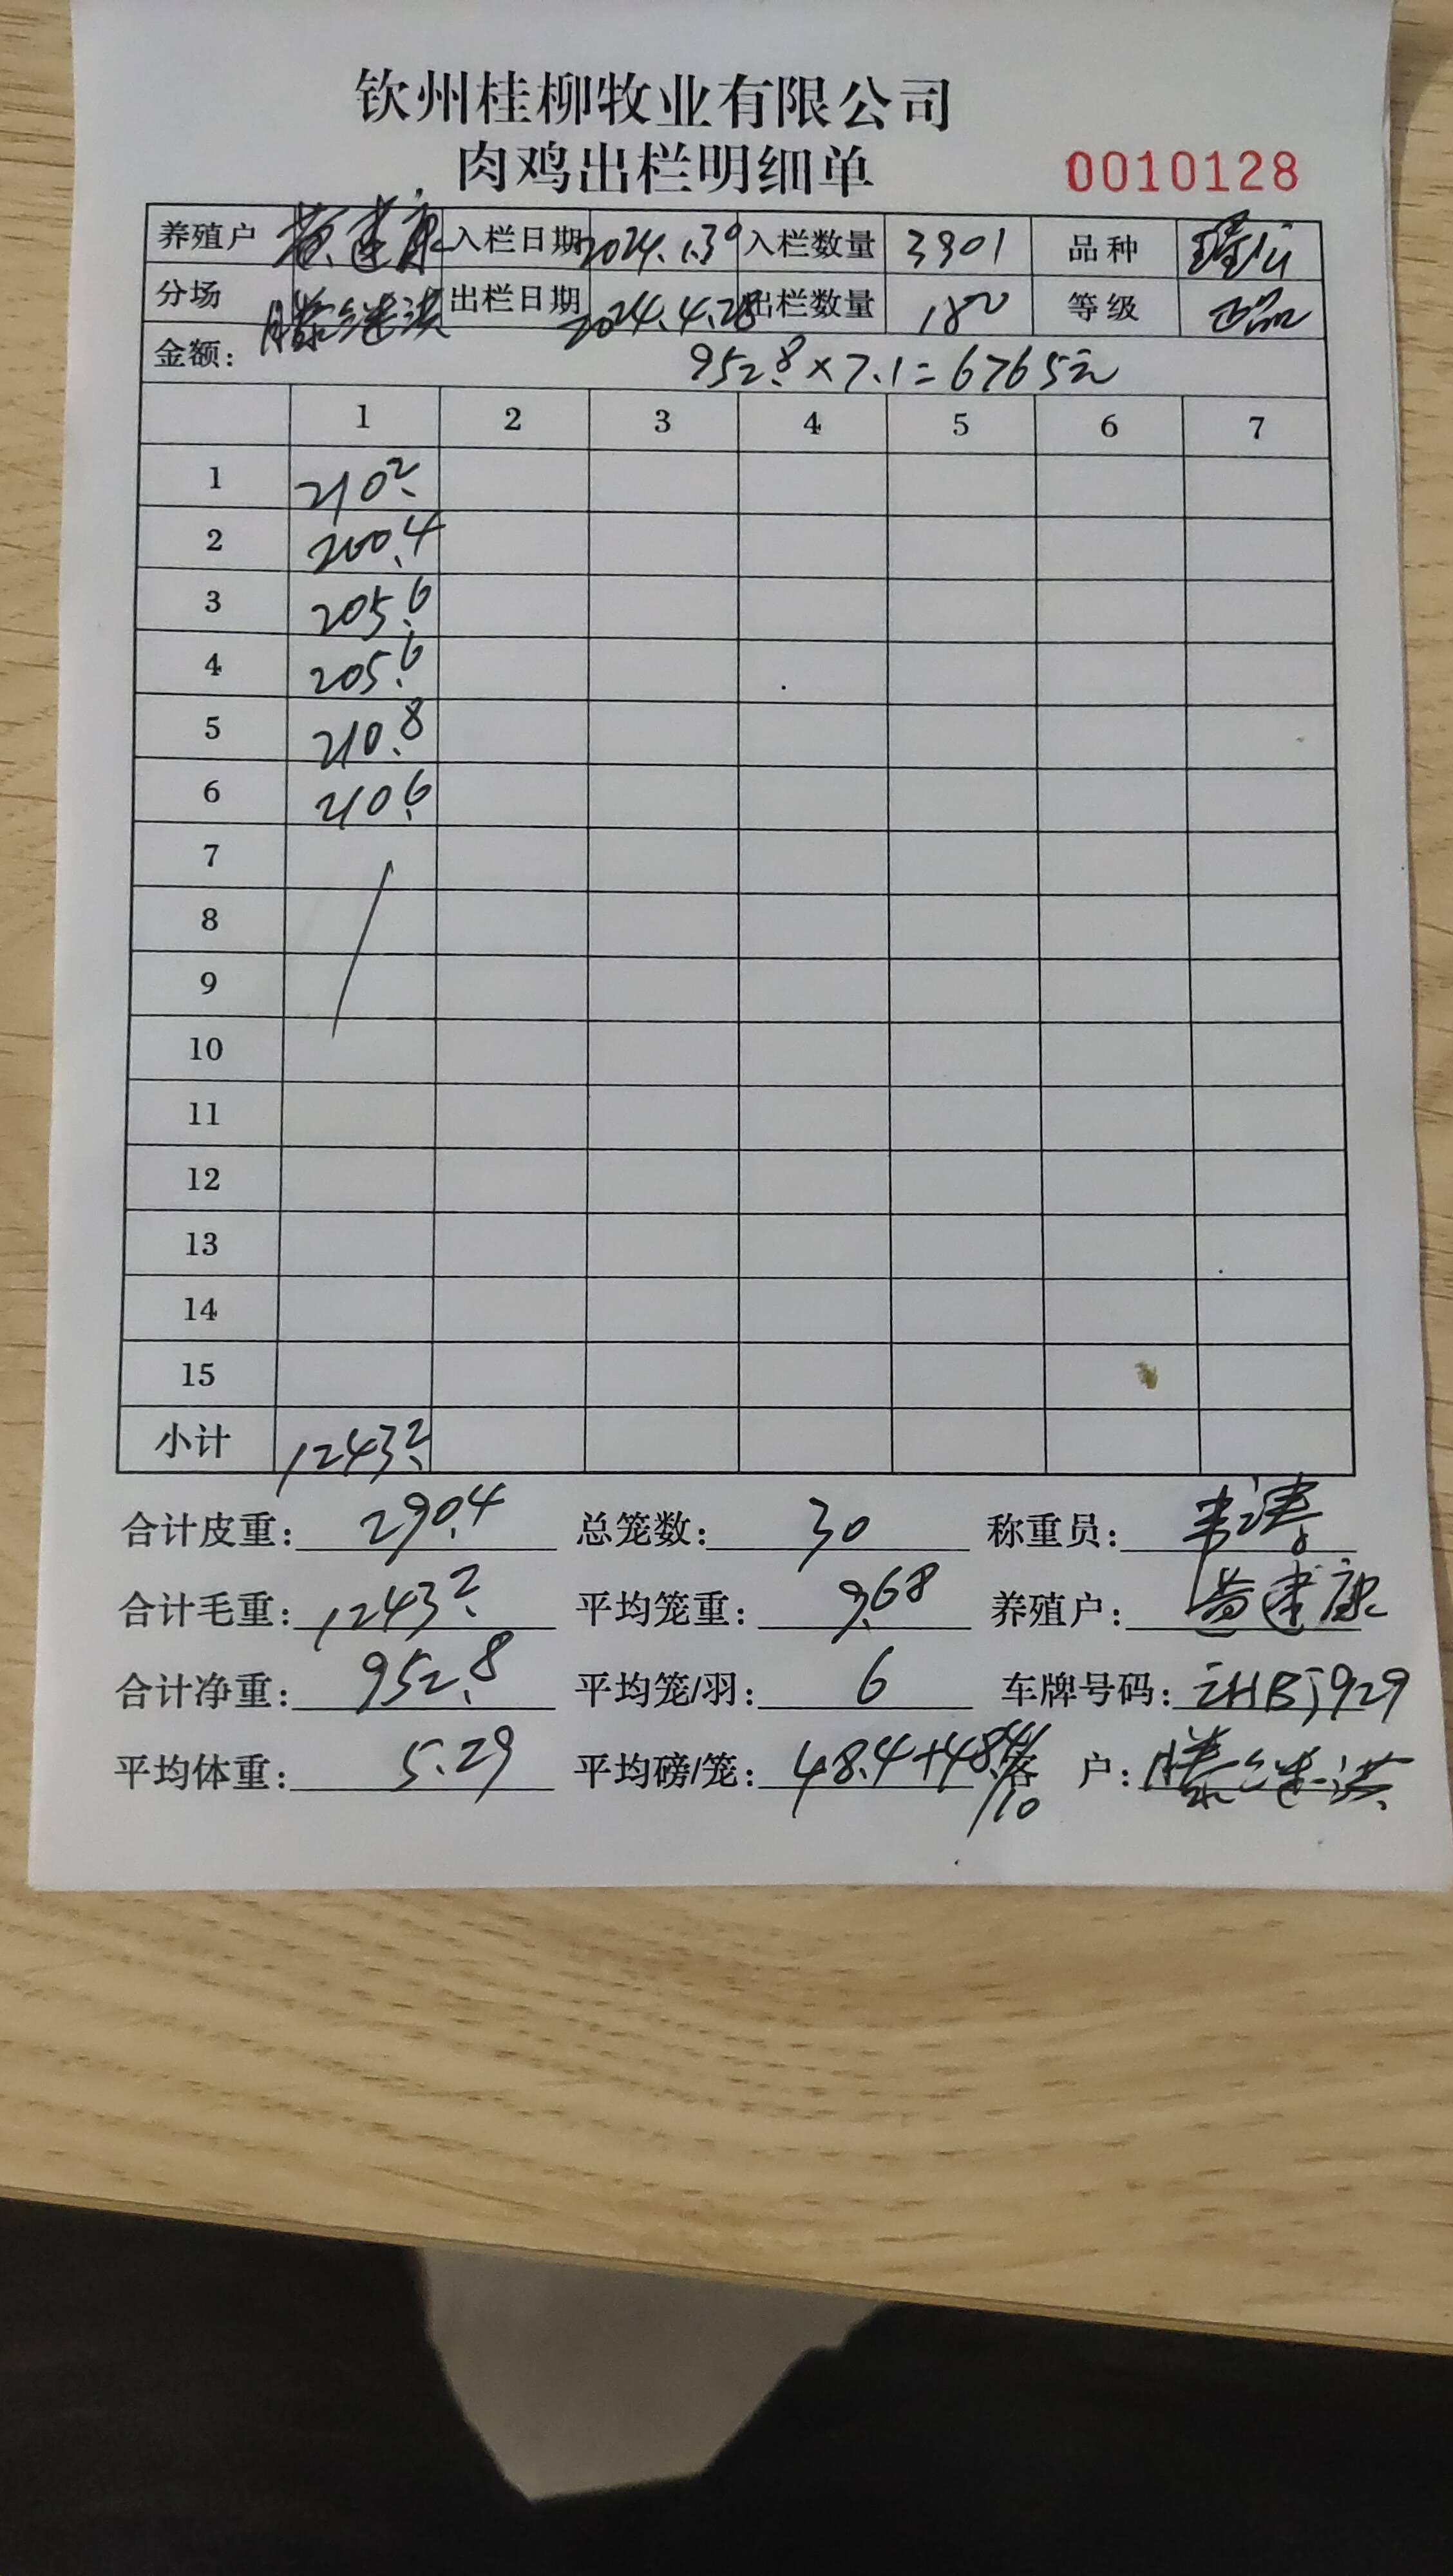 钦州桂柳牧业有限公司
肉鸡出栏明细单 0010128
养殖户 黄建康 入栏日期 2024.1.30 入栏数量 3901 品种
分场 滕继洪 出栏日期 2024.4.28 出栏数量 180 等级 正品
金额: 952.8×7.1=6765元
1 2 3 4 5 6 7
1 210.2
2 200.4
3 205.6
4 205.6
5 210.8
6 210.6
7
8
9
10
11
12
13
14
15
小计 1243.2
合计皮重: 290.4 总笼数: 30 称重员: 韦涛
合计毛重: 1243.2 平均笼重: 9.68 养殖户: 黄建康
合计净重: 952.8 平均笼/羽: 6 车牌号码:
平均体重: 5.29 平均磅/笼: 48.4+48.4/10 客 户: 滕继洪